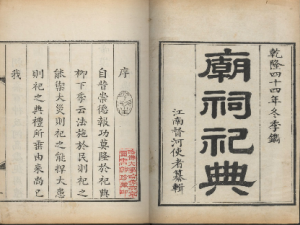 乾隆四十四年冬季鐫
廟祠祀典
江南督河使者纂輯
序
自昔崇德報功莫隆於祀典
柳下季云法施於民則祀之
能禦大災則祀之能捍大患
則祀之典禮所肅由來尚已
我